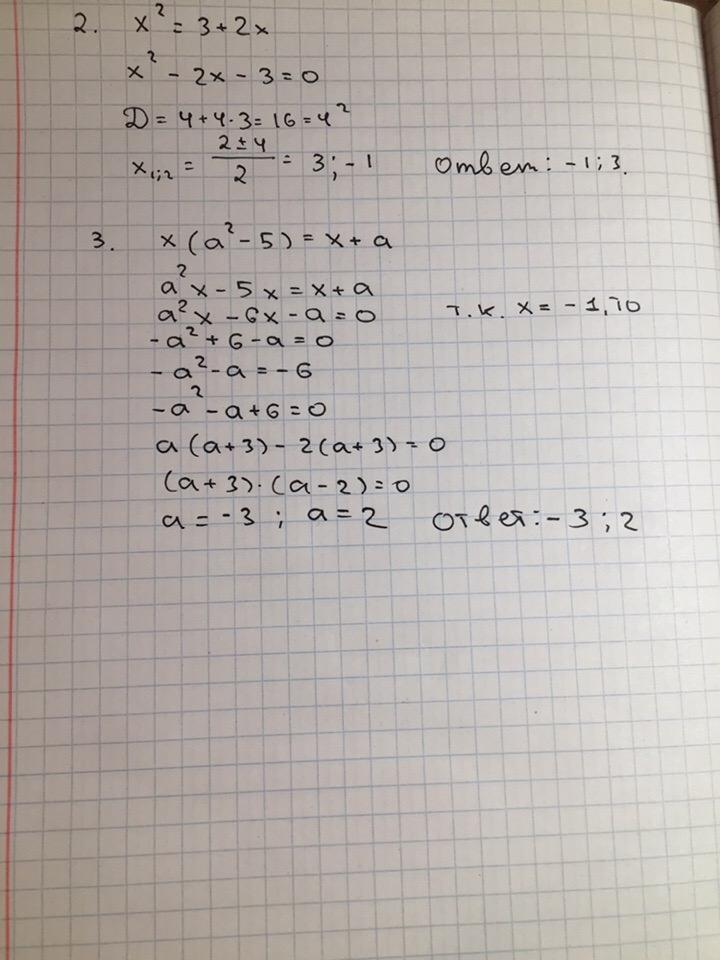 2. x² = 3 + 2x
x² - 2x - 3 = 0
D = 4 + 4·3 = 16 = 4²
x₁;₂ = (2 ± 4)/2 = 3; -1 Ответ: -1; 3.
3. x(a² - 5) = x + a
a²x - 5x = x + a
a²x - 6x - a = 0 т.к. x = -1, то
-a² + 6 - a = 0
-a² - a = -6
-a² - a + 6 = 0
a(a + 3) - 2(a + 3) = 0
(a + 3)·(a - 2) = 0
a = -3; a = 2 Ответ: -3; 2